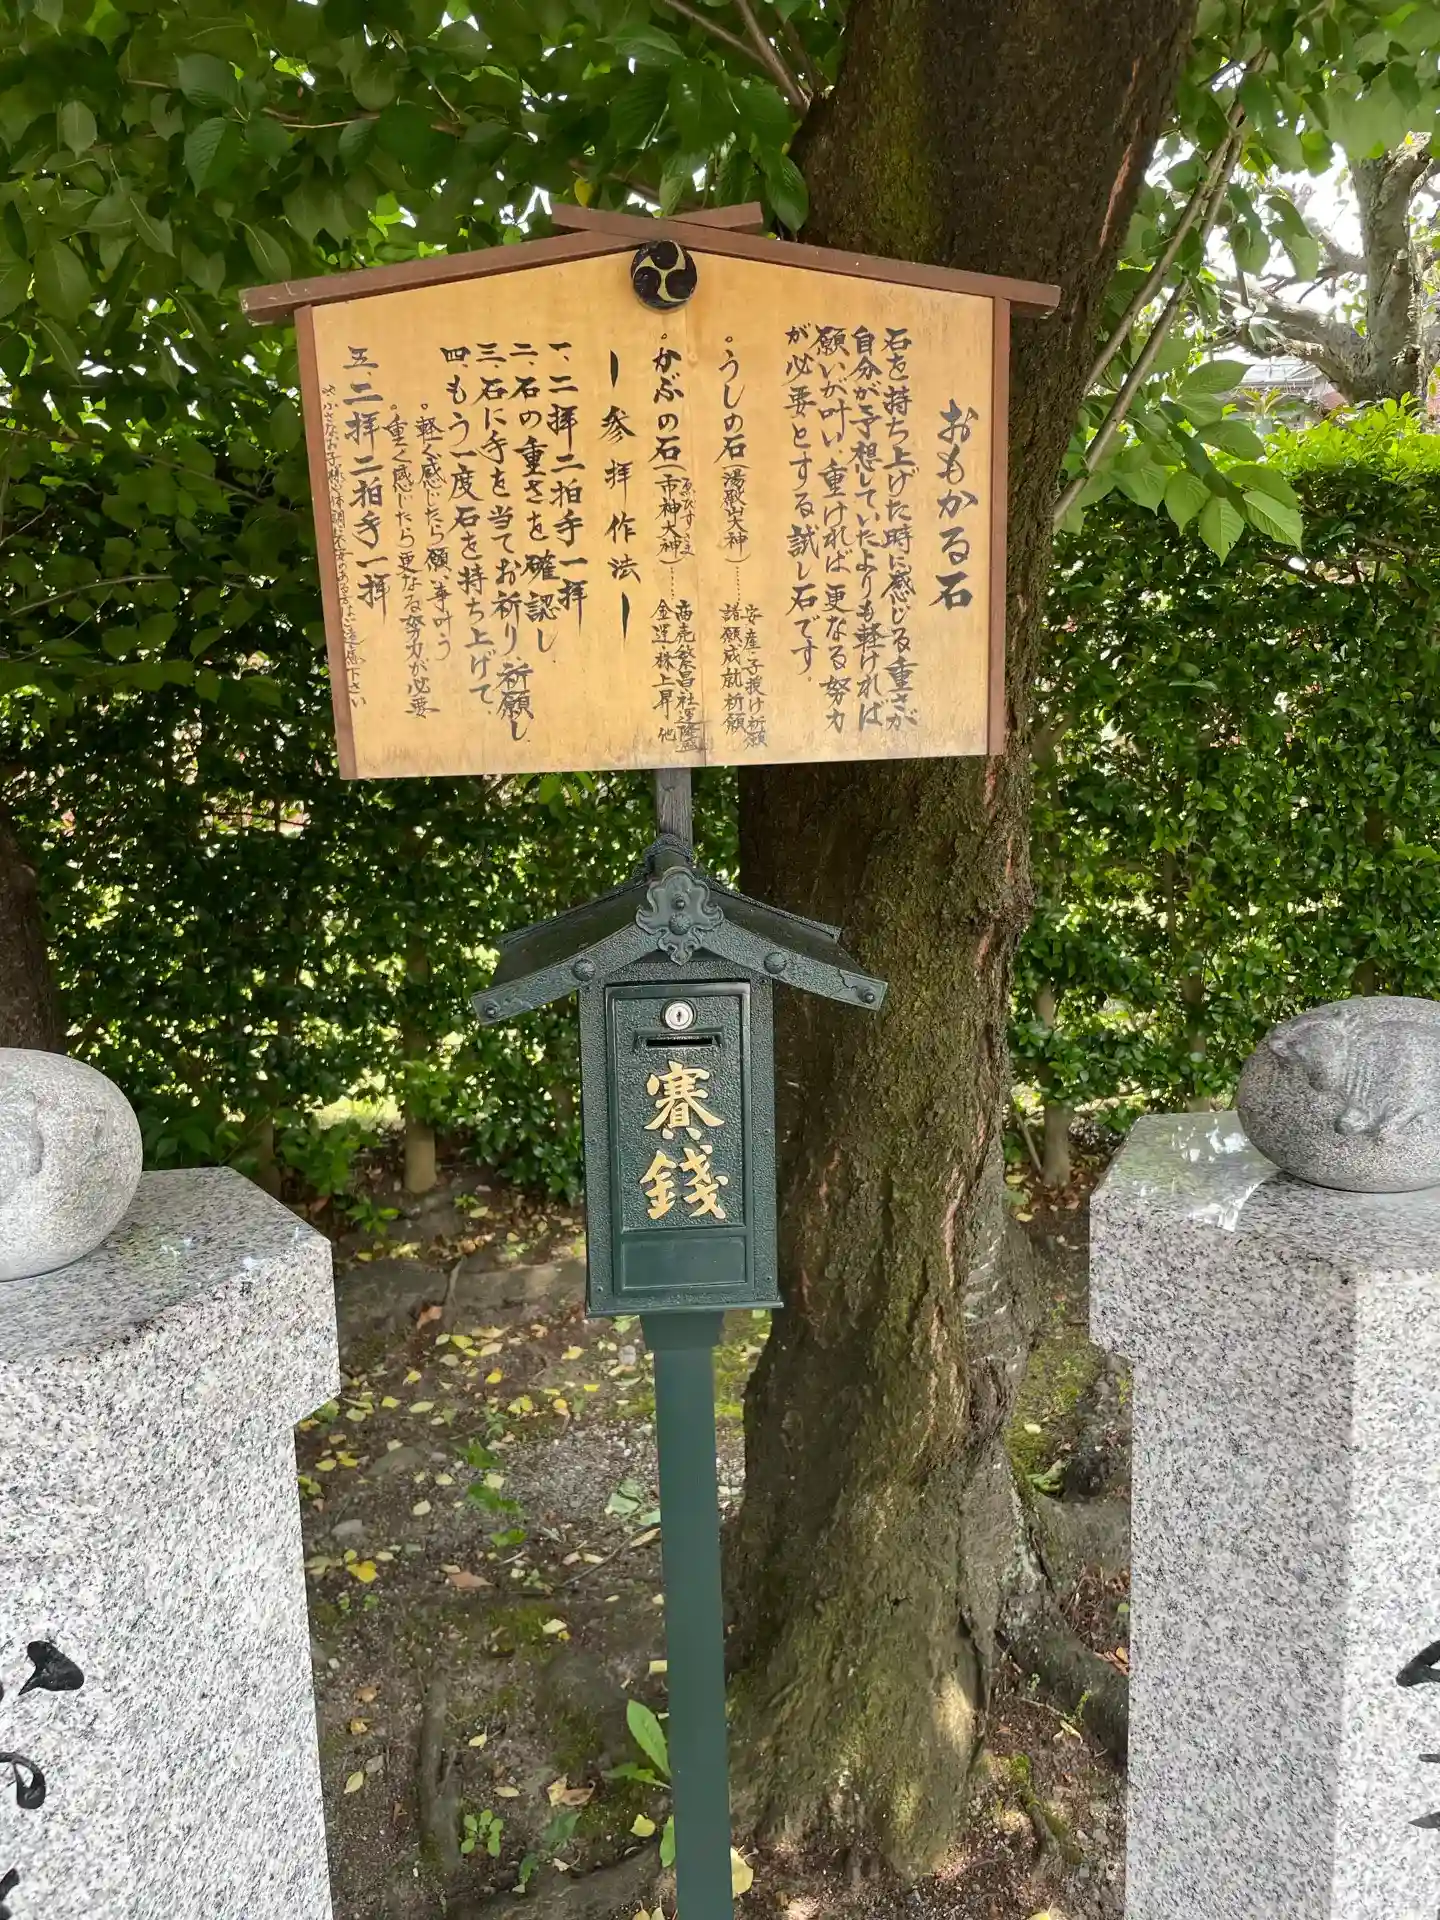 おもかる石
石を持ち上げた時に感じる重さが
自分が予想していたよりも軽ければ
願いが叶い、重ければ更なる努力
が必要とする試し石です。
。うしの石(湯殿山大神)……安産・子授け祈願
諸願成就祈願
。かぶの石(市神大神)……商売繁昌社運隆盛
えびすさま
金運・株上昇 他
ー参拝作法ー
一、二拝二拍手一拝
二、石の重さを確認し
三、石に手を当てお祈り、祈願し
四、もう一度石を持ち上げて、
。軽く感じたら願い事叶う
。重く感じたら更なる努力が必要
五、二拝二拍手一拝
賽銭
う